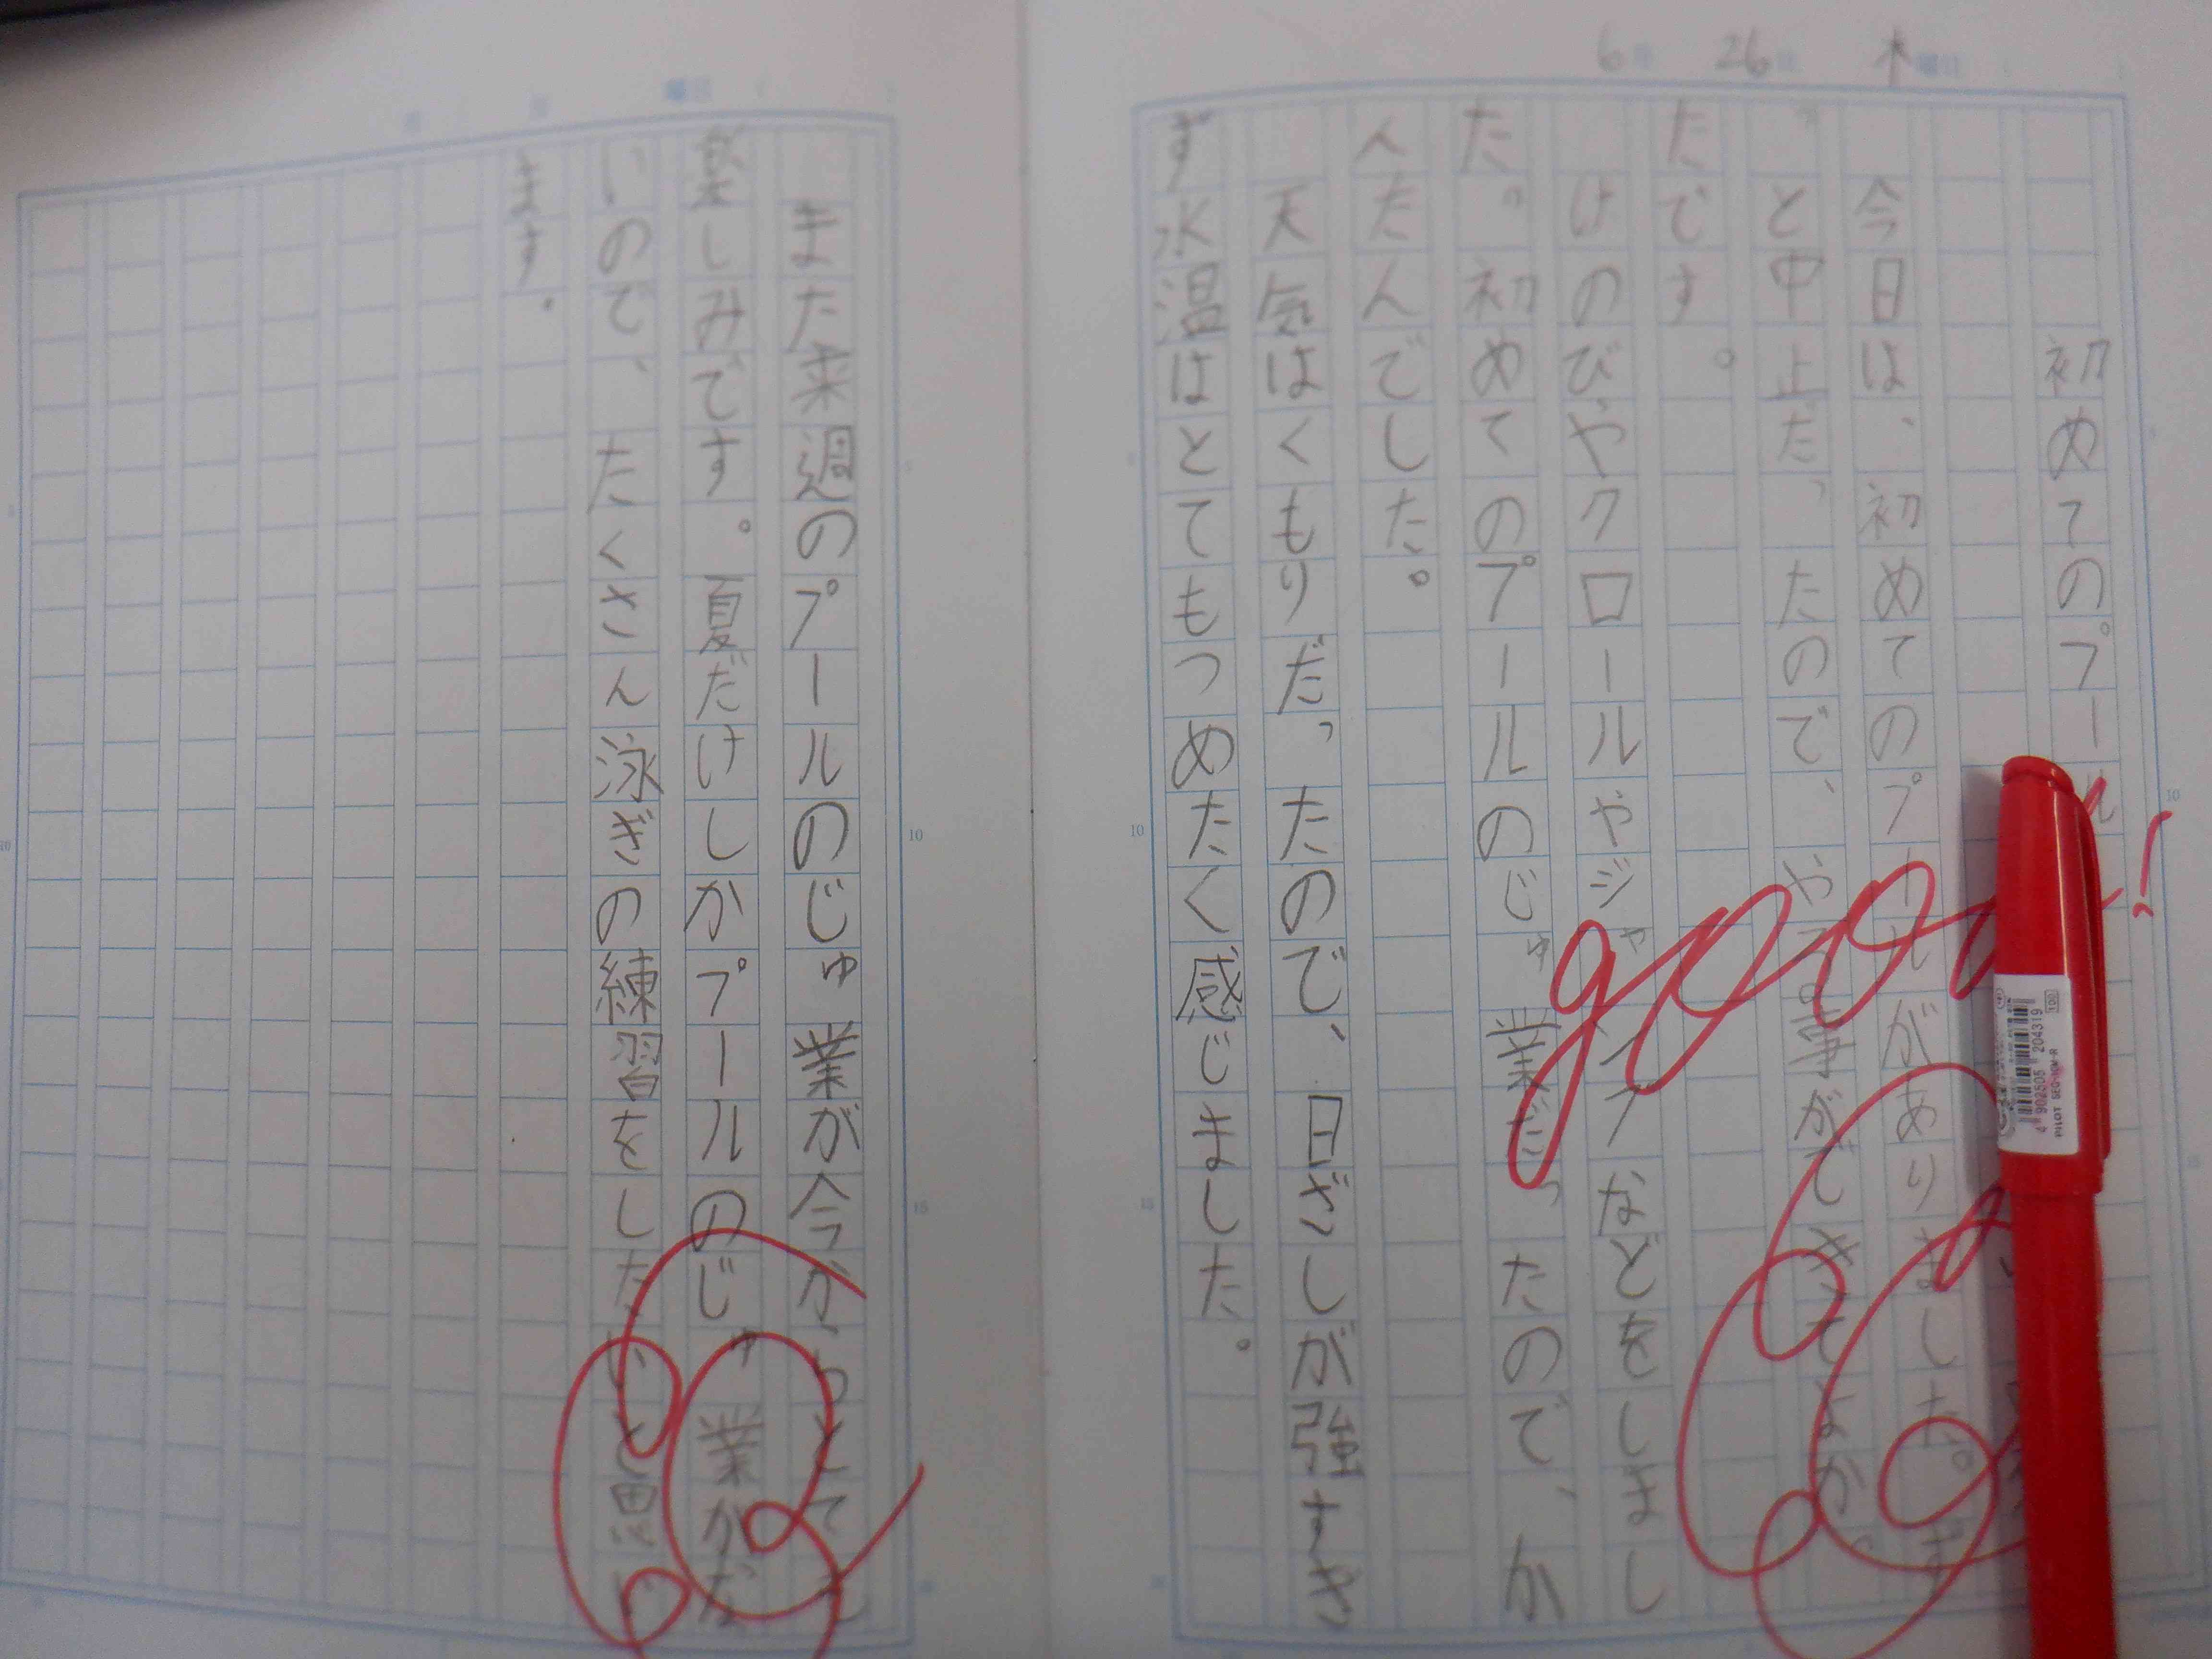 6月 26日 木曜日
初めてのプール
今日は、初めてのプールがありました。ず
っと中止だったので、やる事ができてよかっ
たです。
けのびやクロールやなどをしまし
た。初めてのプールのじゅ業だったので、か
んたんでした。
天気はくもりだったので、日ざしが強すぎ
ず水温はとてもつめたく感じました。
good!
4 902505 204319
PILOT
100
10
10
15
月 日 曜日
また来週のプールのじゅ業が今からとても
楽しみです。夏だけしかプールのじゅ業がな
いので、たくさん泳ぎの練習をしたいと思い
ます.
10
10
15